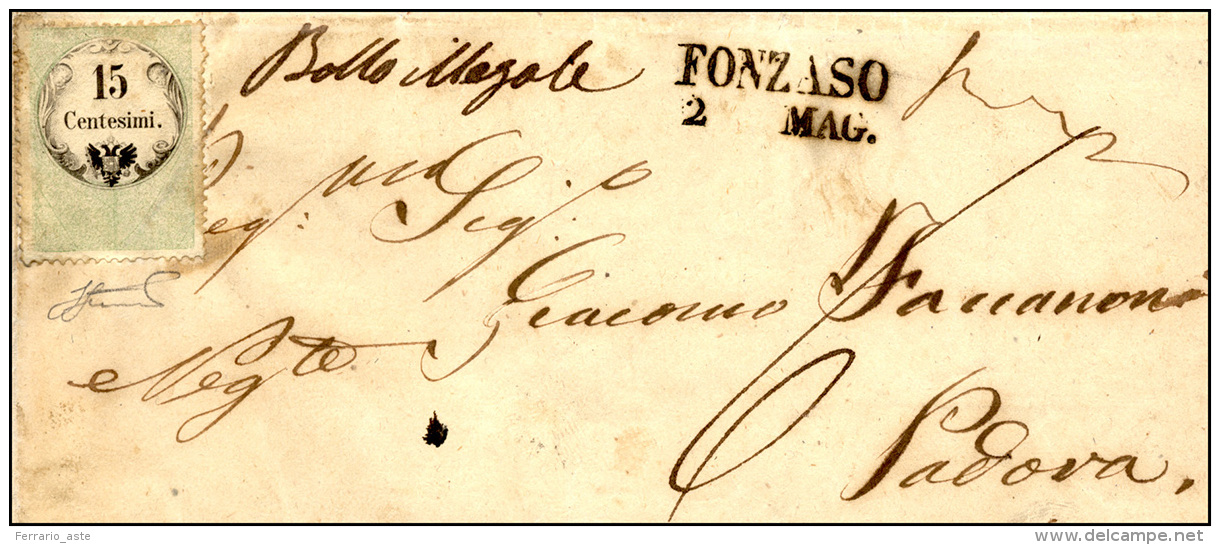 15
Centesimi.
Bollo illegale
FONZASO
2 MAG.
Sig.
Giacomo Faccanoni
Negte
Padova.
Ferrario_aste
delcampe.net